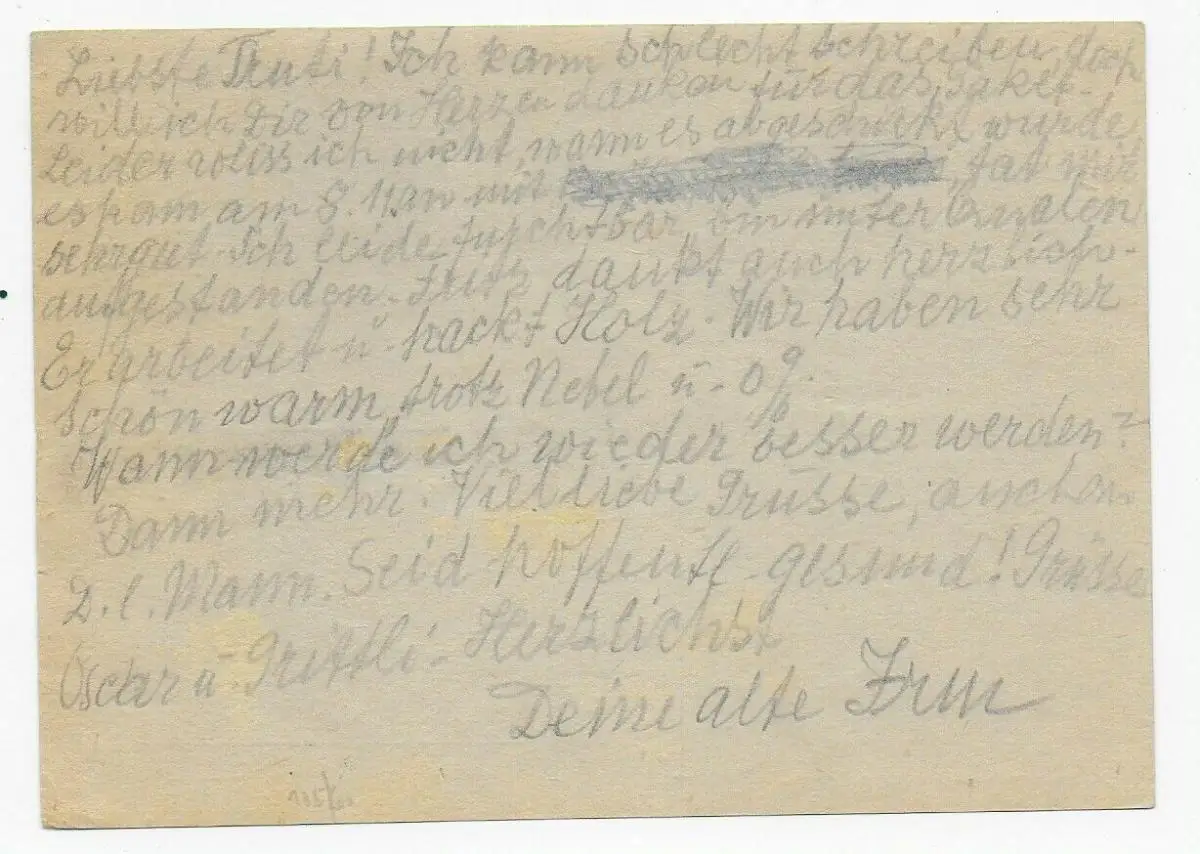 Liebste Trudi! Ich kann schlecht schreiben, doch
will ich Dir von Herzen danken für das Paket.
Leider weiss ich nicht, wann es abgeschickt wurde,
es kam am 8. Jan mit tat mir
sehr gut. Ich leide furchtbar, bin unter Qualen
aufgestanden. Fritz dankt auch herzlich.
Er arbeitet u. hackt Holz. Wir haben sehr
schön warm, trotz Nebel u. 0°.
Wann werde ich wieder besser werden?
Dann mehr. Viel liebe Grüsse, auch
D. l. Mann. Seid hoffentl. gesund! Grüsse
Oscar u. Grittli. Herzlichst
Deine alte